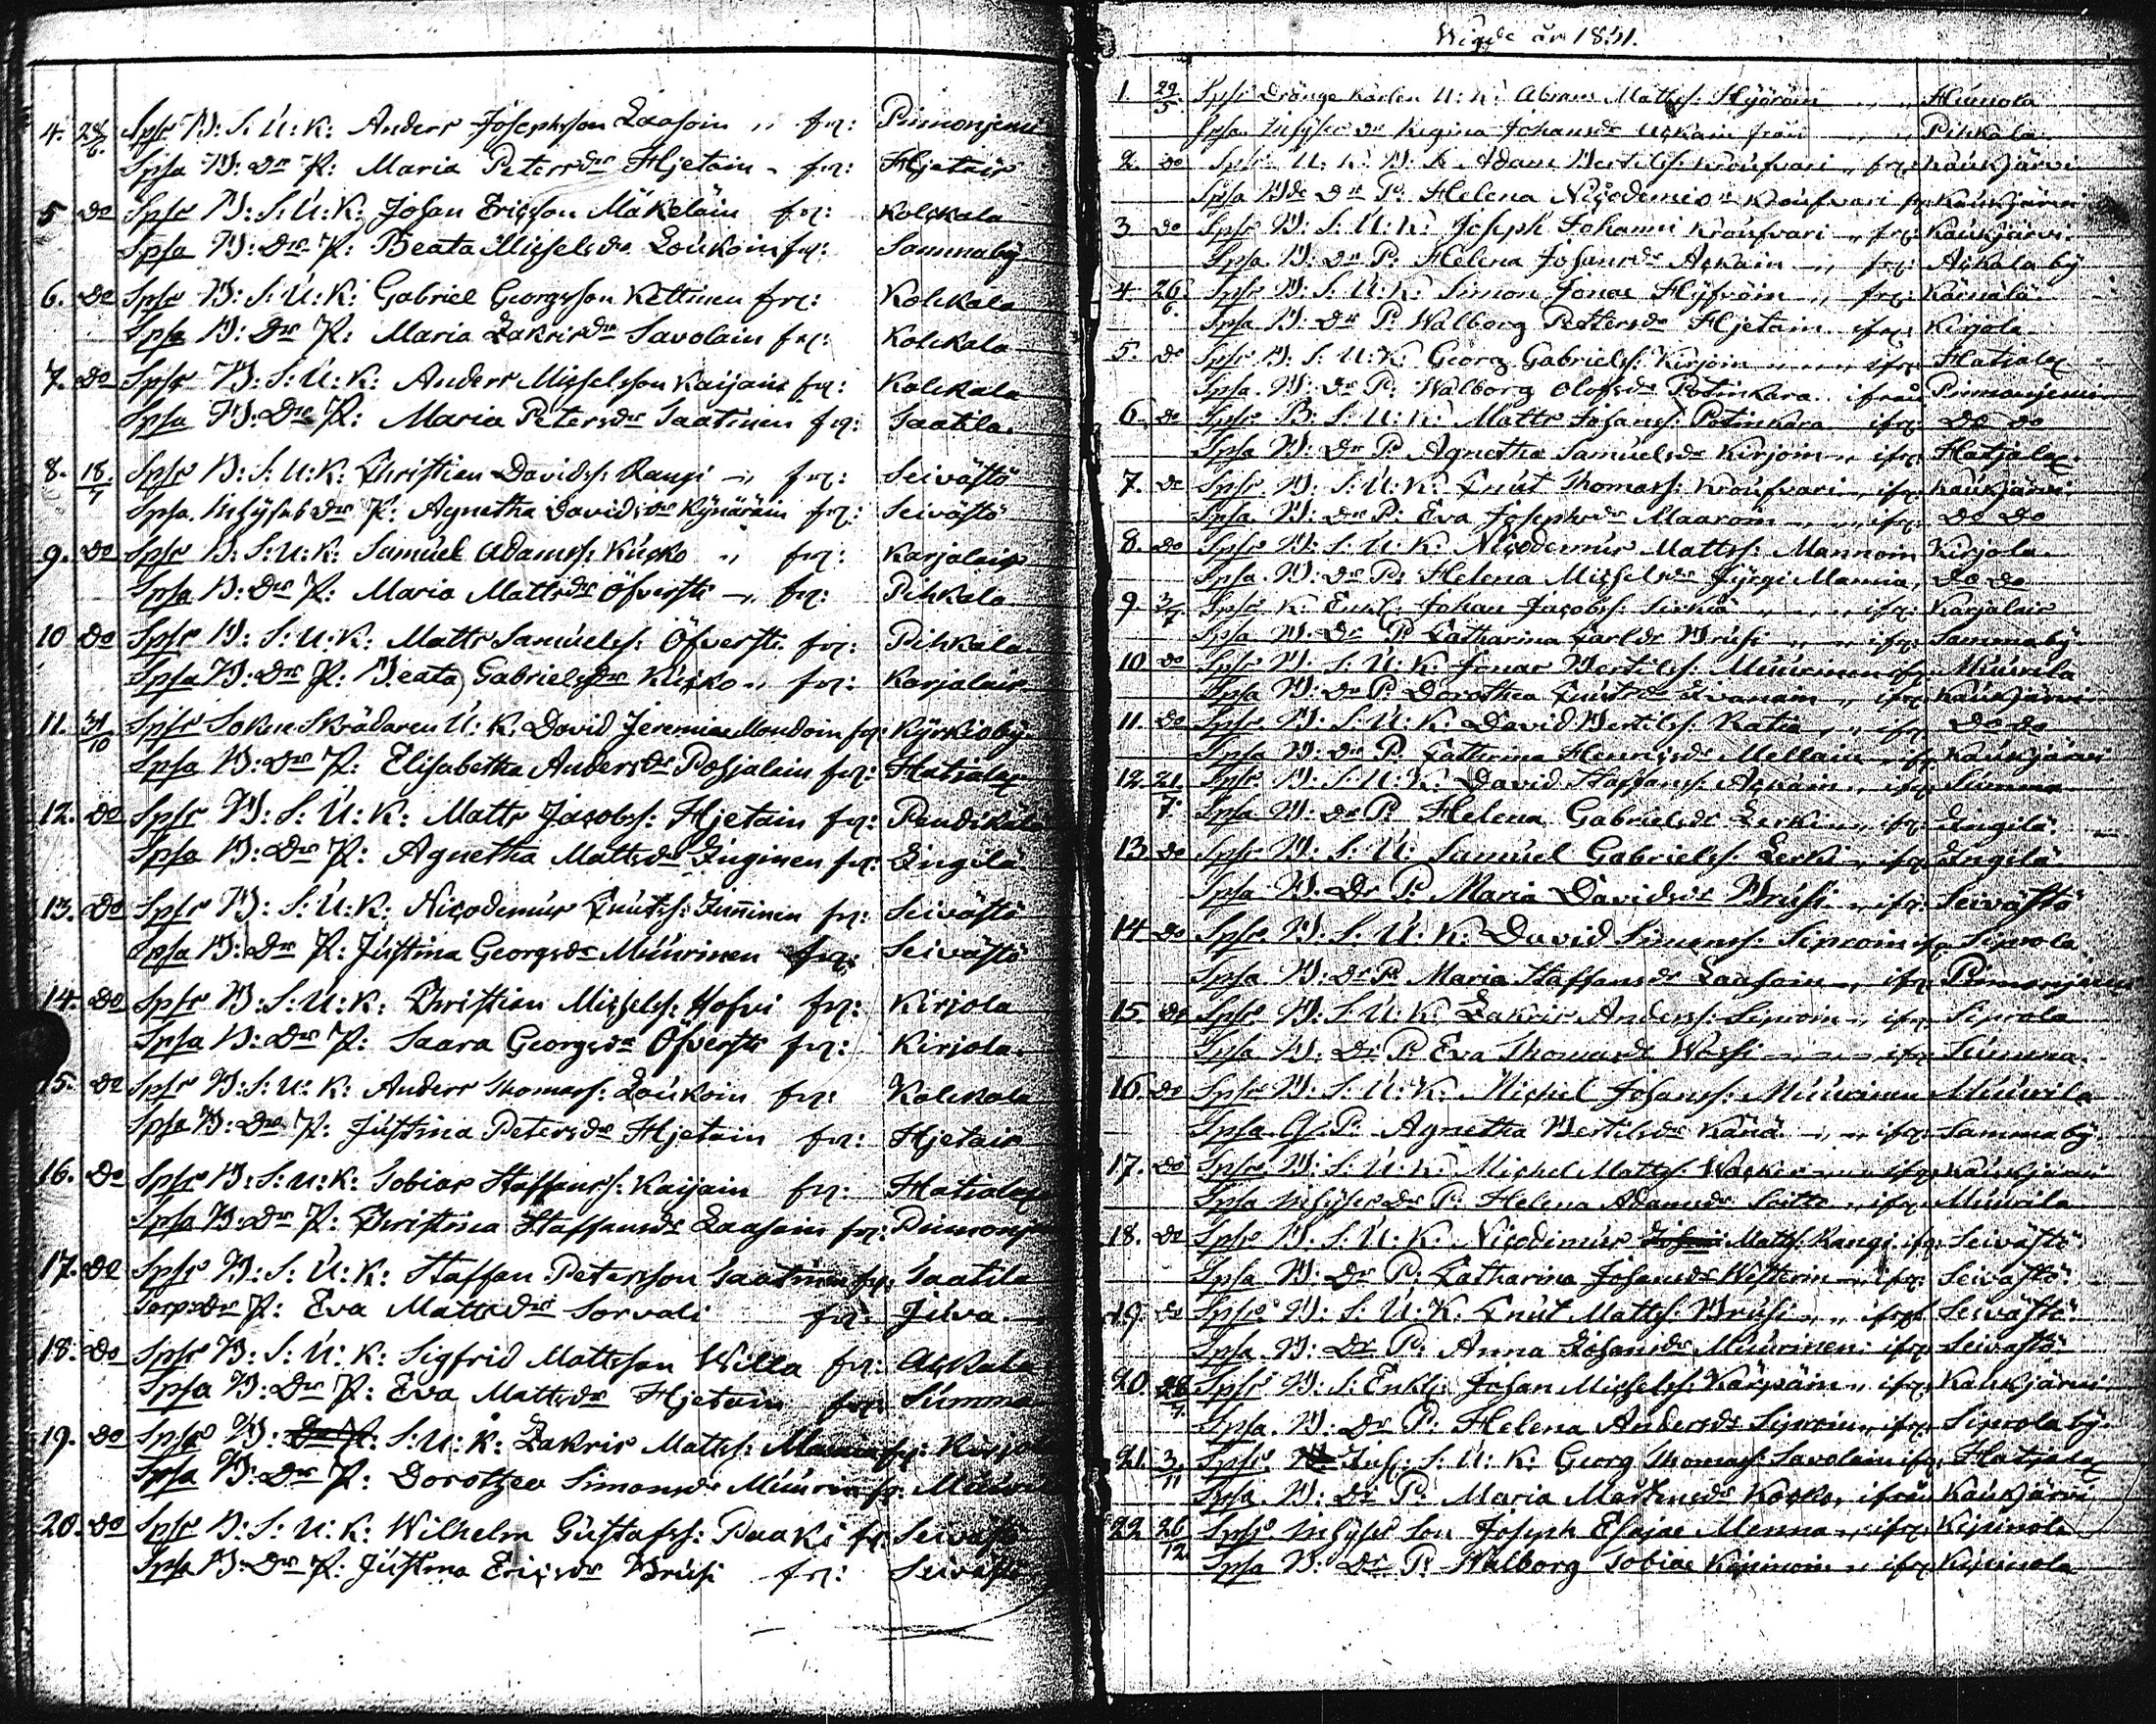 4. 28/6. Spſr B: S: U: K: Anders Josephsson Laasoin „ frn: Pinnonjemi
Spſa B: Dr P: Maria Petersdr Hjetain „ frn: Hjetais
5 Do Spſr B: S: U: K: Johan Ericsson Mäkeläin frn: Kolckala
Spſa B: Dr P: Beata Michelsdr Loukoin frn: Sammaby
6. Do Spſr B: S: U: K: Gabriel Georgsson Kettinen frn: Kolckala
Spſa B: Dr P: Maria Zakrisdr Savolain frn: Kolckala
7. Do Spſr B: S: U: K: Anders Michelsson Kaijain frn: Kolckala
Spſa B: Dr P: Maria Petersdr Taatinen frn: Taatila
8. 18/7 Spſr B: S: U: K: Christian Davidss: Rangi „ frn: Seivästö
Spſa Inhyses Dr P: Agnetha Davidsdr Kynäräin frn: Seivästö
9. Do Spſr B: S: U: K: Samuel Adamss: Kucko „ frn: Karjalais
Spſa B: Dr P: Maria Mattsdr Öfversti „ frn: Pihkala
10 Do Spſr B: S: U: K: Matts Samuelss: Öfversti frn: Pihkala
Spſa B: Dr P: Beata Gabrielsdr Kucko „ frn: Karjalais
11. 31/10 Spſr Soken Skrädaren U: K: David Jeremiae Mondoin frn: Kyrkioby
Spſa B: Dr P: Elisabetha Andersdr Pohjalain frn: Hatialax
12. Do Spſr B: S: U: K: Matts Jacobss: Hjetain frn: Pendikälä
Spſa B: Dr P: Agnetha Mattsdr Inginen frn: Ingilä
13. Do Spſr B: S: U: K: Nicodemus Cnutss: Iinninen frn: Seivästö
Spſa B: Dr P: Justina Georgsdr Muurinen frn: Seivästö
14. Do Spſr B: S: U: K: Christian Michelss: Hofvi frn: Kirjola
Spſa B: Dr P: Saara Georgsdr Öfversti frn: Kirjola
15. Do Spſr B: S: U: K: Anders Thomass: Loukoin frn: Kolckala
Spſa B: Dr P: Justina Petersdr Hjetain frn: Hjetais
16. Do Spſr B: S: U: K: Tobias Staffanss: Kaijain frn: Hatialax
Spſa B: Dr P: Christina Staffansdr Laasoin frn: Pinnonj
17. Do Spſr B: S: U: K: Staffan Petersson Taatinen frn: Taatila
Torp: Dr P: Eva Mattsdr Sorvali frn: Juva
18. Do Spſr B: S: U: K: Sigfrid Mattsson Willa frn: Ackala
Spſa B: Dr P: Eva Mattsdr Hjetain frn: Summa
19. Do Spſr B: S: U: K: Zakris Matss:
Spſa B: Dr P: Dorothea Simonsdr Muurin fr:
20. Do Spſr B: S: U: K: Wilhelm Gustafss: Paaki fr: Seivästö
Spſa B: Dr P: Justina Ericsdr Brusi frn: Seivästö
Wigde år 1841.
1. 29/5. Spſr Dränge Karlen U: K: Abram Mattss: Hyöräin „ „ Humola
Spſa Inhyses dr Regina Johansdr Ackain från „ Pihkala
2. Do Spſr U: K: B: S: Adam Bertilss: Kroufvari „ frn: Kaukjärvi
Spſa Bde Dr P: Helena Nicodemi Kroufvari frn: Kaukjärvi
3 Do Spſr B: S: U: K: Joseph Johanni Kroufvari „ frn: Kaukjärvi
Spſa B: Dr P: Helena Johansdr Ackain „ frn: Ackala by
4 26/6. Spſr B: S: U: K: Simon Jonae Hyfröin „ frn:
Spſa B: Dr P: Walborg Pettersdr Hjetain ifrn: Kirjola
5. Do Spſr B: S: U: K: Georg Gabrielss: Kirjoin „ „ ifrn: Hatialax
Spſa B: Dr P: Walborg Olofsdr Potinkara ifrån Pinnonjemi
6. Do Spſr B: S: U: K: Matts Johanss: Potinkara ifrn: Do Do
Spſa B: Dr P: Agnetha Samuelsdr Kirjoin „ ifrn: Hatjalax
7. Do Spſr B: S: U: K: Cnut Thomass: Kroufvari „ ifrn: Kaukjärvi
Spſa B: Dr P: Eva Josephsdr Maaroin „ „ ifrn: Do Do
8. Do Spſr B: S: U: K: Nicodemus Mattss: Mannoin Kirjola
Spſa B: Dr P: Helena Michelsdr Jyrgi Mannia, Do Do
9. 3/7. Spſr K: Enkl: Johan Jacobss: Sirkiä „ „ ifrn: Karjalais
Spſa B: Dr P: Catharina Carlsdr Brusi „ „ ifrn: Sammaby
10 Do Spſr B: S: U: K: Jonas Bertilss: Muurinen ifrn: Muurila
Spſa B: Dr P: Dorothea Cnutsdr Ivanain „ ifrn: Kaukjärvi
11. Do Spſr B: S: U: K: David Bertilss: Ratia „ „ ifrn: Do Do
Spſa B: Dr P: Cathrina Henricsdr Mellain „ ifr: Kaukjärvi
12 21/7. Spſr B: S: U: K: David Staffanss: Ackain „ ifrn: Summa
Spſa B: Dr P: Helena Gabrielsdr Lerkin „ ifrn: Ingilä
13 Do Spſr B: S: U: Samuel Gabrielss: Lerki „ ifrn: Ingilä
Spſa B: Dr P: Maria Davidsdr Brusi „ ifrn: Seivästö
14 Do Spſr B: S: U: K: David Simonss: Siproin ifrn: Siprola
Spſa B: Dr P: Maria Staffansdr Laasoin „ ifrn: Pinnonjemi
15. Do Spſr B: S: U: K: Zakris Anderss: Siproin „ ifrn: Siprola
Spſa B: Dr P: Eva Thomasdr Wassi „ „ ifrn: Summa
16. Do Spſr B: S: U: K: Michel Johanss: Muurinen Muurila
Spſa P: Agnetha Bertilsdr Känä „ „ ifrn: Sammaby
17. Do Spſr B: S: U: K: Michel Mattss: Wacker „ ifrn: Kaukjärvi
Spſa Inhyses Dr P: Helena Adamsdr Soitto „ ifrn: Muurila
18. Do Spſr B: S: U: K: Nicodimus Mattss: Rangi ifrn: Seivästö
Spſa B: Dr P: Catharina Johansdr Westerin „ ifrn: Seivästö
19. Do Spſr B: S: U: K: Cnut Mattss: Brusi „ „ ifrn: Seivästö
Spſa B: Dr P: Anna Johansdr Muurinen ifrn: Seivästö
20 28/7. Spſr B: S: Enkl: Johan Michelss: Kärpäin „ ifrn: Kaukjärvi
Spſa B: Dr P: Helena Andersdr Siproin „ ifrn: Siprola by
21. 3/11 Spſr Inh: S: U: K: Georg Thomass: Savolain ifrn: Hatjalax
Spſa B: Dr P: Maria Mårtensdr Kocko, ifrån Kaukjärvi
22 26/12 Spſr Inhyses Son Joseph Esajae Menna „ ifrn: Kipinola
Spſa B: Dr P: Walborg Tobiae Kipinoin „ ifrn: Kipinola